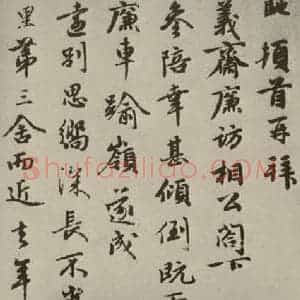 頓首再拜
義齋廉訪相公閣下
參陪幸甚傾倒既
廉車踰嶺遂成
遠別思嚮深長不
第三舍而近去年
Shufaziliao.com